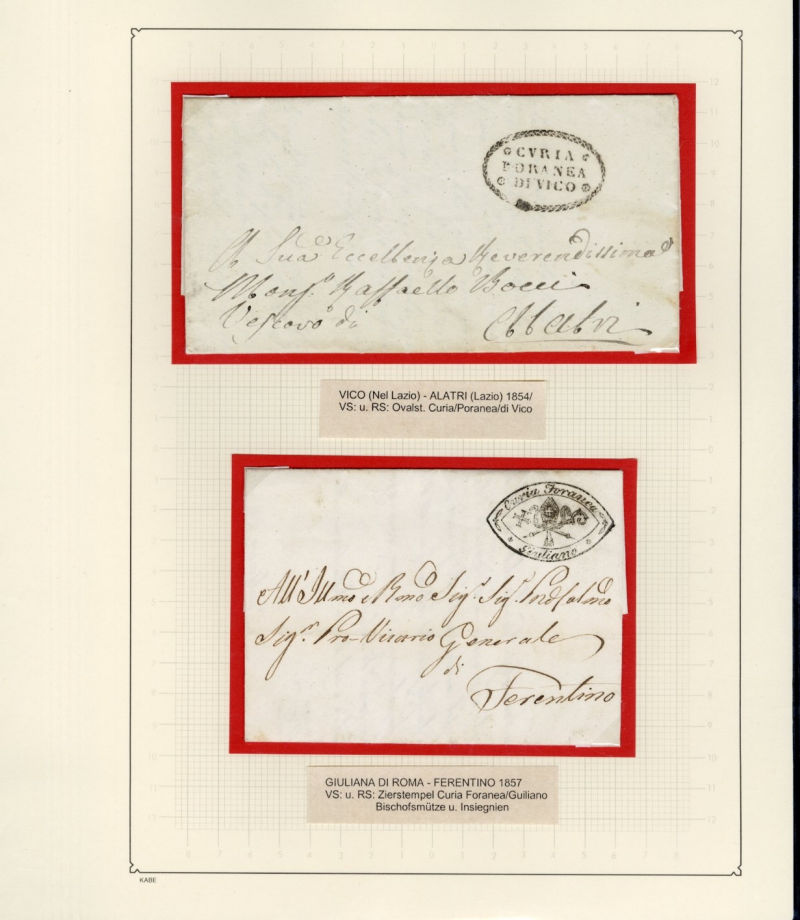 CVRIA
PORANEA
DI VICO
A Sua Eccellenza Reverendissima
Monsr. Raffaello Bocci
Vescovo di Alatri
VICO (Nel Lazio) - ALATRI (Lazio) 1854/
VS: u. RS: Ovalst. Curia/Poranea/di Vico
Curia Foranea
Giuliano
All'Illmo e Rmo Sigr. Sigr. Pne Colmo
Sigr. Pro-Vicario Generale
di
Ferentino
GIULIANA DI ROMA - FERENTINO 1857
VS: u. RS: Zierstempel Curia Foranea/Guiliano
Bischofsmütze u. Insiegnien
KABE